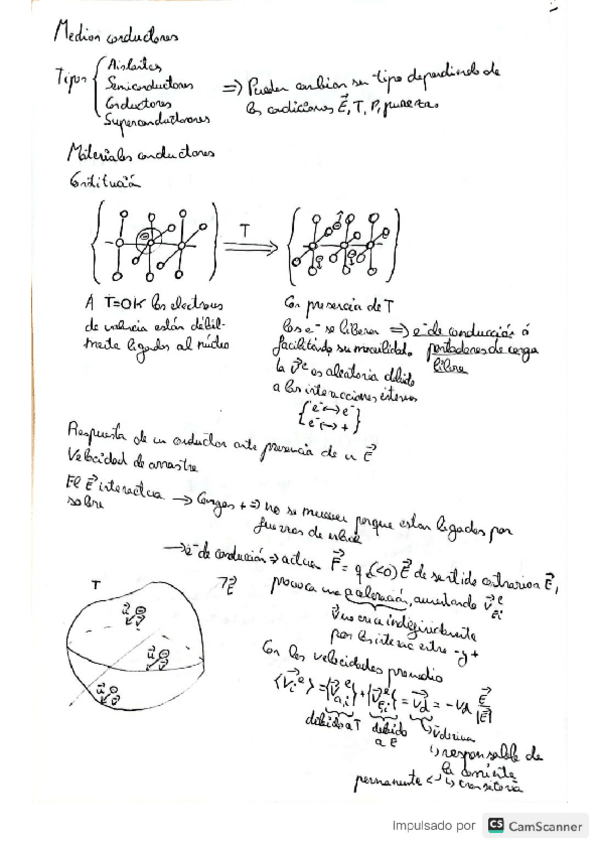 Medios conductores
Tipos { Aislantes
Semiconductores
Conductores
Superconductores
=> Pueden cambiar su tipo dependiendo de
las condiciones E⃗, T, P, pureza.
Materiales conductores
Constitución
T
A T=0K los electrones
de valencia están débil-
mente ligados al núcleo
Con presencia de T
los e⁻ se liberan => e⁻ de conducción ó
facilitando su movilidad. portadores de carga
libre
la v⃗ᵉ es aleatoria debido
a las interacciones internas
{ e⁻<->e⁻
e⁻<->+ }
Respuesta de un conductor ante presencia de un E⃗
Velocidad de arrastre
El E⃗ interactua
sobre
-> Cargas + => no se mueven porque estan ligados por
fuerzas de enlace
-> e⁻ de conducción => actua F⃗ = q(<0) E⃗ de sentido contrario a E⃗,
provoca una aceleración, aumentando
v⃗ no crece indefinidamente
por las interac entre - y +
T
E⃗
u⃗
u⃗
u⃗
Con las velocidades promedio
debido a T
debido
a E
v deriva
responsable de
la corriente
permanente
transitoria
Impulsado por CS CamScanner